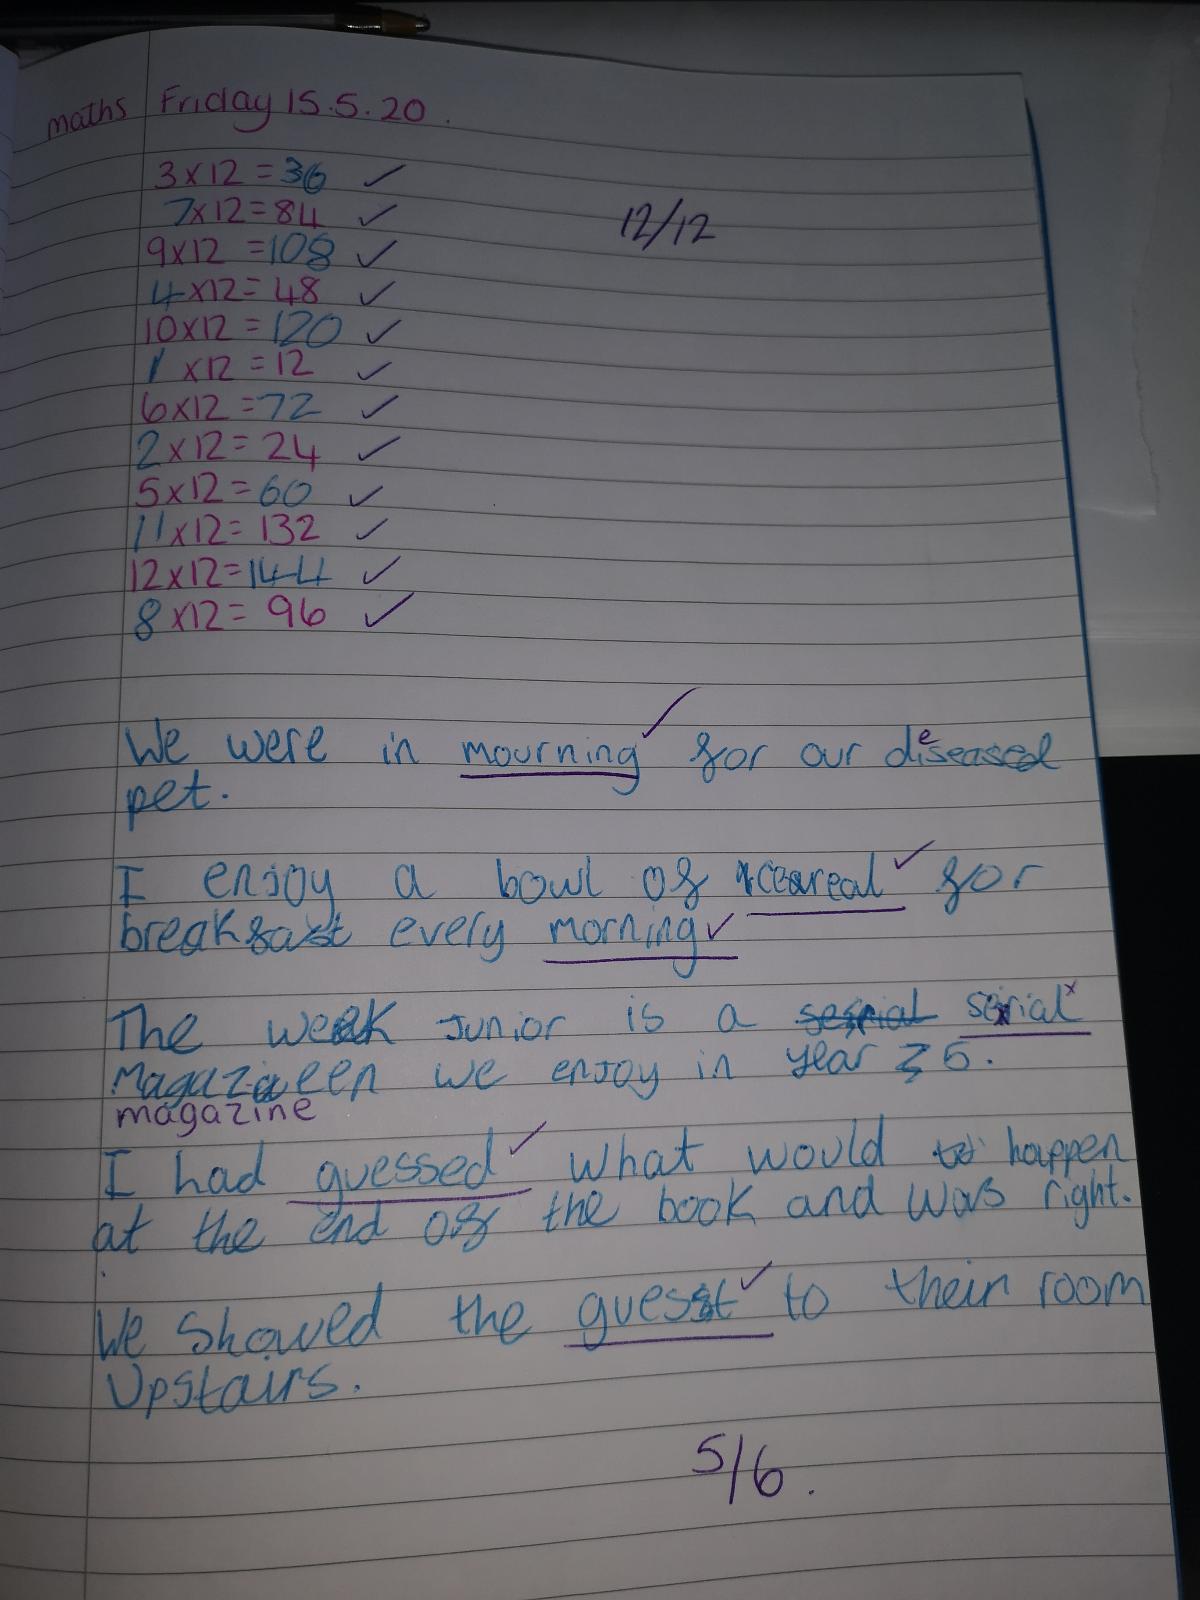 maths Friday 15.5.20.
3x12=36 ✓
7x12=84 ✓
12/12
9x12=108 ✓
4x12=48 ✓
10x12=120 ✓
1x12=12 ✓
6x12=72 ✓
2x12=24 ✓
5x12=60 ✓
11x12=132 ✓
12x12=144 ✓
8x12=96 ✓
We were in mourning ✓ for our deseased
pet.
I enjoy a bowl of ceareal ✓ for
breakfast every morning ✓
The week Junior is a serial x
Magazeen we enjoy in year 5.
magazine
I had guessed ✓ what would happen
at the end of the book and was right.
We showed the guest ✓ to their room
Upstairs.
5/6.